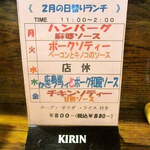 2月の日替りランチ
TIME 11:00〜2:00
月 ハンバーグ
ソース
火 ポークソティー
ベーコンとキノコのソース
水 店休
木
ポーク和風ソース
金 チキンソティー
ソース
スープ・サラダ・ライス付き
¥800-(税込¥880-)
KIRIN